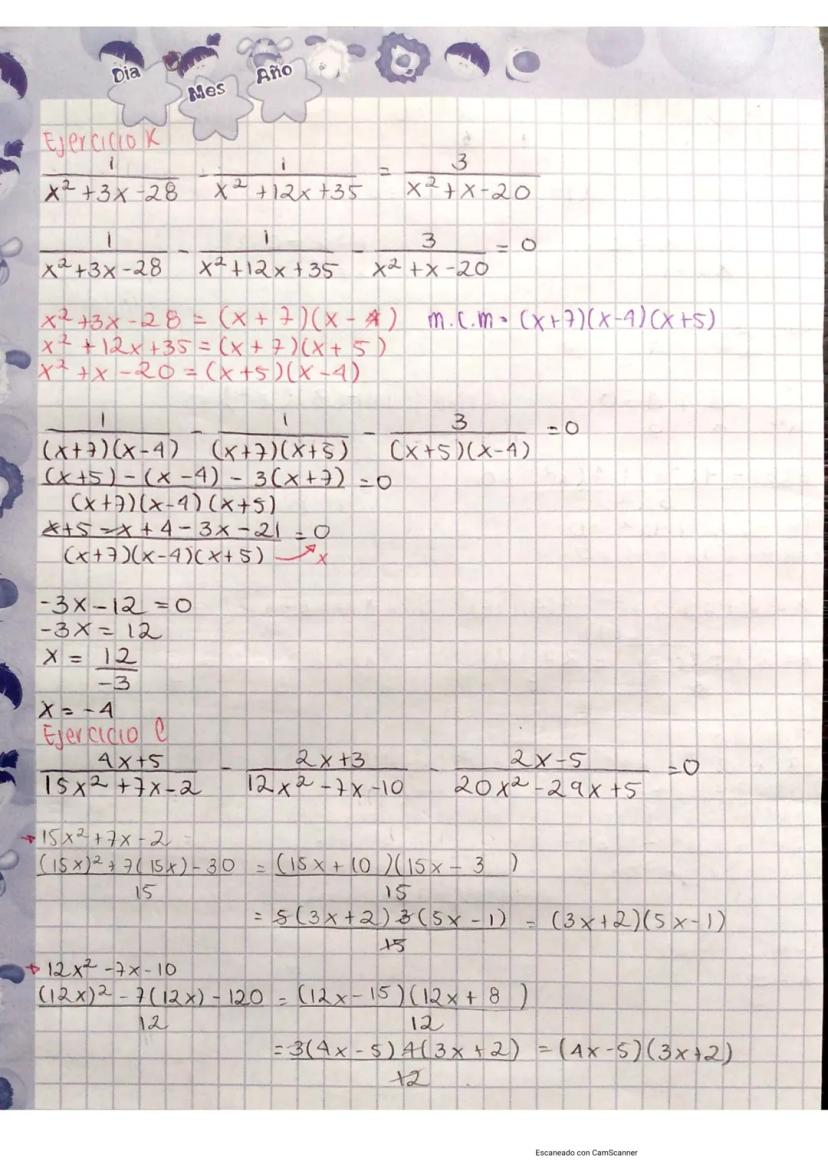 Dia
Mes
Año
Ejercicio K
1/(x² + 3x - 28) - 1/(x² + 12x + 35) = 3/(x² + x - 20)
1/(x² + 3x - 28) - 1/(x² + 12x + 35) - 3/(x² + x - 20) = 0
x² + 3x - 28 = (x + 7)(x - 4) m.c.m = (x+7)(x-4)(x+5)
x² + 12x + 35 = (x + 7)(x + 5)
x² + x - 20 = (x+5)(x-4)
1/((x+7)(x-4)) - 1/((x+7)(x+5)) - 3/((x+5)(x-4)) = 0
((x+5) - (x-4) - 3(x+7))/((x+7)(x-4)(x+5)) = 0
(x+5 - x + 4 - 3x - 21)/((x+7)(x-4)(x+5)) = 0 x
-3x - 12 = 0
-3x = 12
x = 12/-3
x = -4
Ejercicio l
(4x+5)/(15x² + 7x - 2) - (2x+3)/(12x² - 7x - 10) - (2x-5)/(20x² - 29x + 5) = 0
→ 15x² + 7x - 2
((15x)² + 7(15x) - 30)/15 = ((15x + 10)(15x - 3))/15
= (5(3x+2)3(5x-1))/15 = (3x+2)(5x-1)
→ 12x² - 7x - 10
((12x)² - 7(12x) - 120)/12 = ((12x - 15)(12x + 8))/12
= (3(4x-5)4(3x+2))/12 = (4x-5)(3x+2)
Escaneado con CamScanner